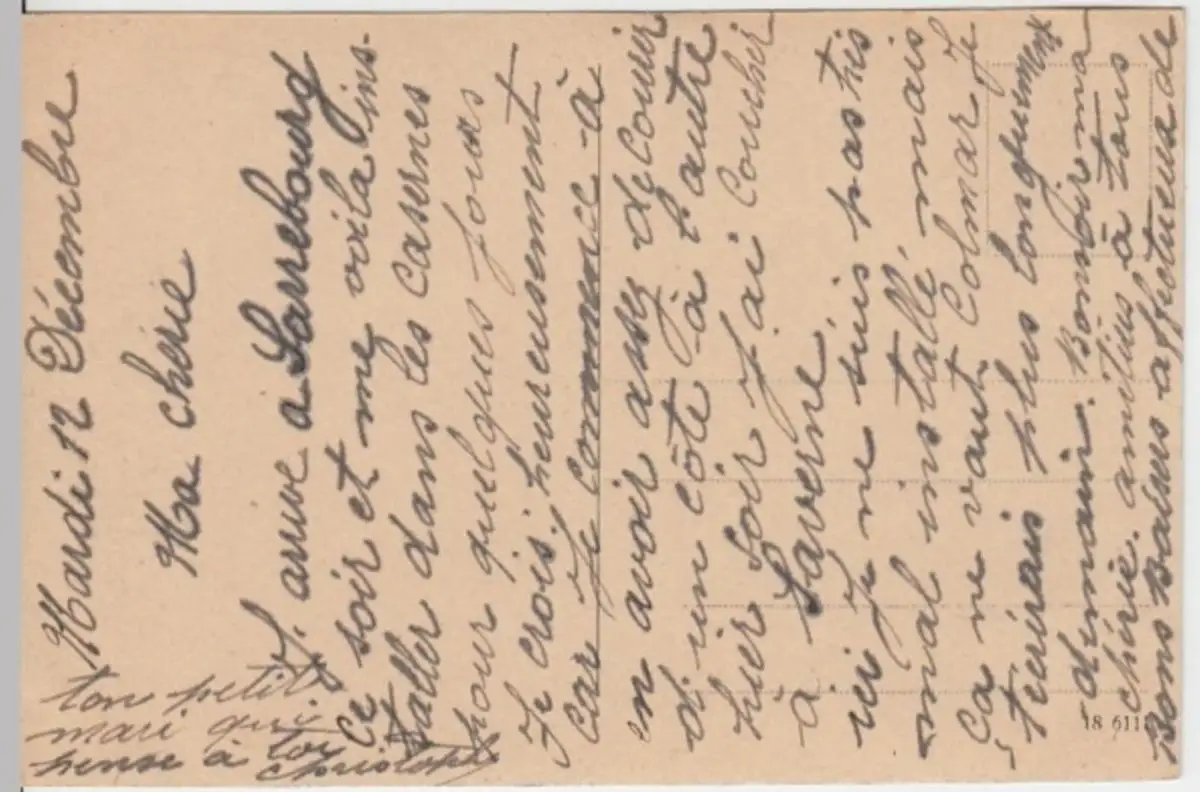 Mardi 12 Décembre
Ma chérie
J. arrive a Sarrebourg
ce soir et me voila ins-
taller dans les casernes
pour quelques jours
je crois, heureusement
car je commence à
en avoir assez de courir
d'un côte à l'autre
hier soir j'ai coucher
à Saverne
ici je ne suis pas très
mal installé, mais
ça ne vaut Colmar je
t'écrirais plus longuement
demain. Bonsoir ma
chérie amitiés à tous
Bons Baisers affectueux de
ton petit
mari qui
pense à toi
Christophe
18 611